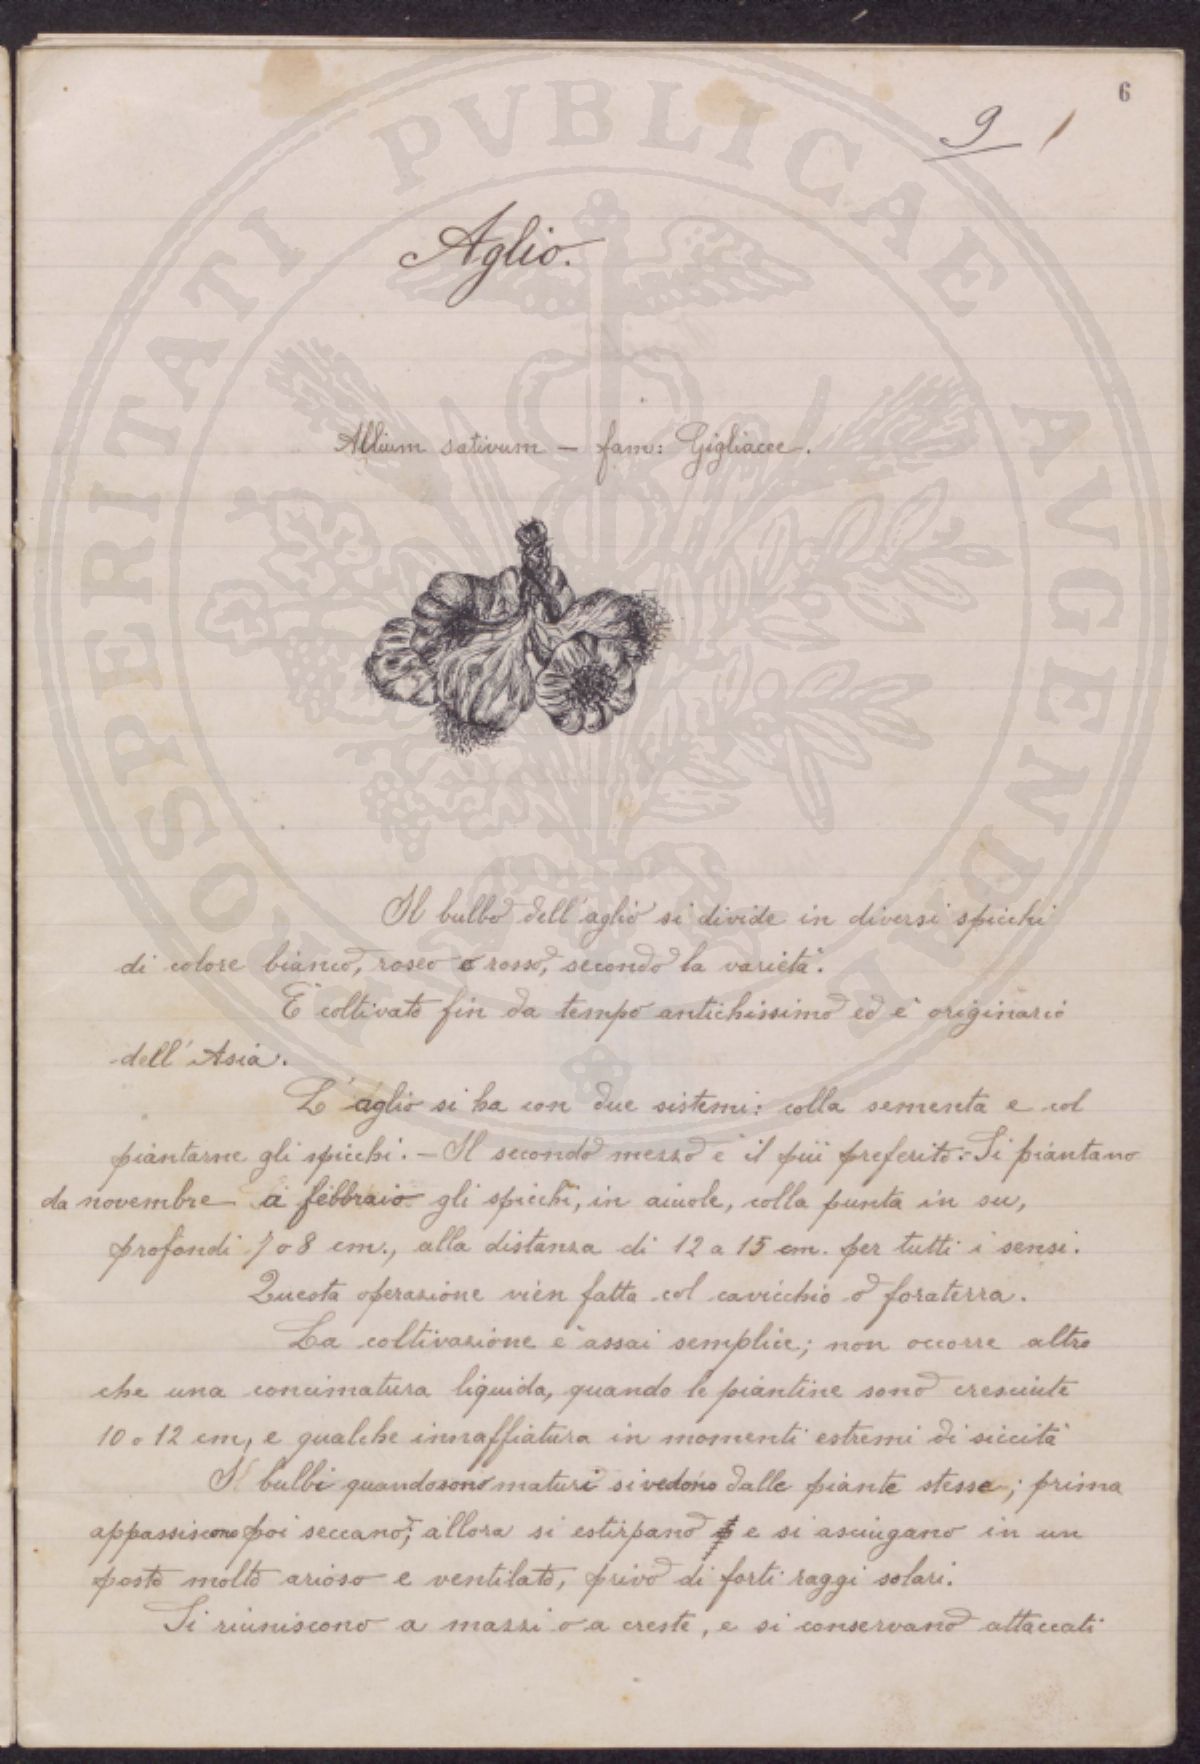 6
9
Aglio.
Allium sativum — fam: Gigliacee.
Il bulbo dell'aglio si divide in diversi spicchi
di colore bianco, roseo o rosso, secondo la varietà.
E' coltivato fin da tempo antichissimo ed è originario
dell'Asia.
L'aglio si ha con due sistemi: colla sementa e col
piantarne gli spicchi. – Il secondo mezzo è il più preferito. Si piantano
da novembre a febbraio gli spicchi, in aiuole, colla punta in su,
profondi 7 o 8 cm., alla distanza di 12 a 15 cm. per tutti i sensi.
Questa operazione vien fatta col cavicchio o foraterra.
La coltivazione è assai semplice; non occorre altro
che una concimatura liquida, quando le piantine sono cresciute
10 o 12 cm, e qualche innaffiatura in momenti estremi di siccità
I bulbi quando sono maturi si vedono dalle piante stesse; prima
appassiscono poi seccano; allora si estirpano e si asciugano in un
posto molto arioso e ventilato, privo di forti raggi solari.
Si riuniscono a mazzi o a creste, e si conservano attaccati
PROSPERITATI PVBLICAE AVGENDAE